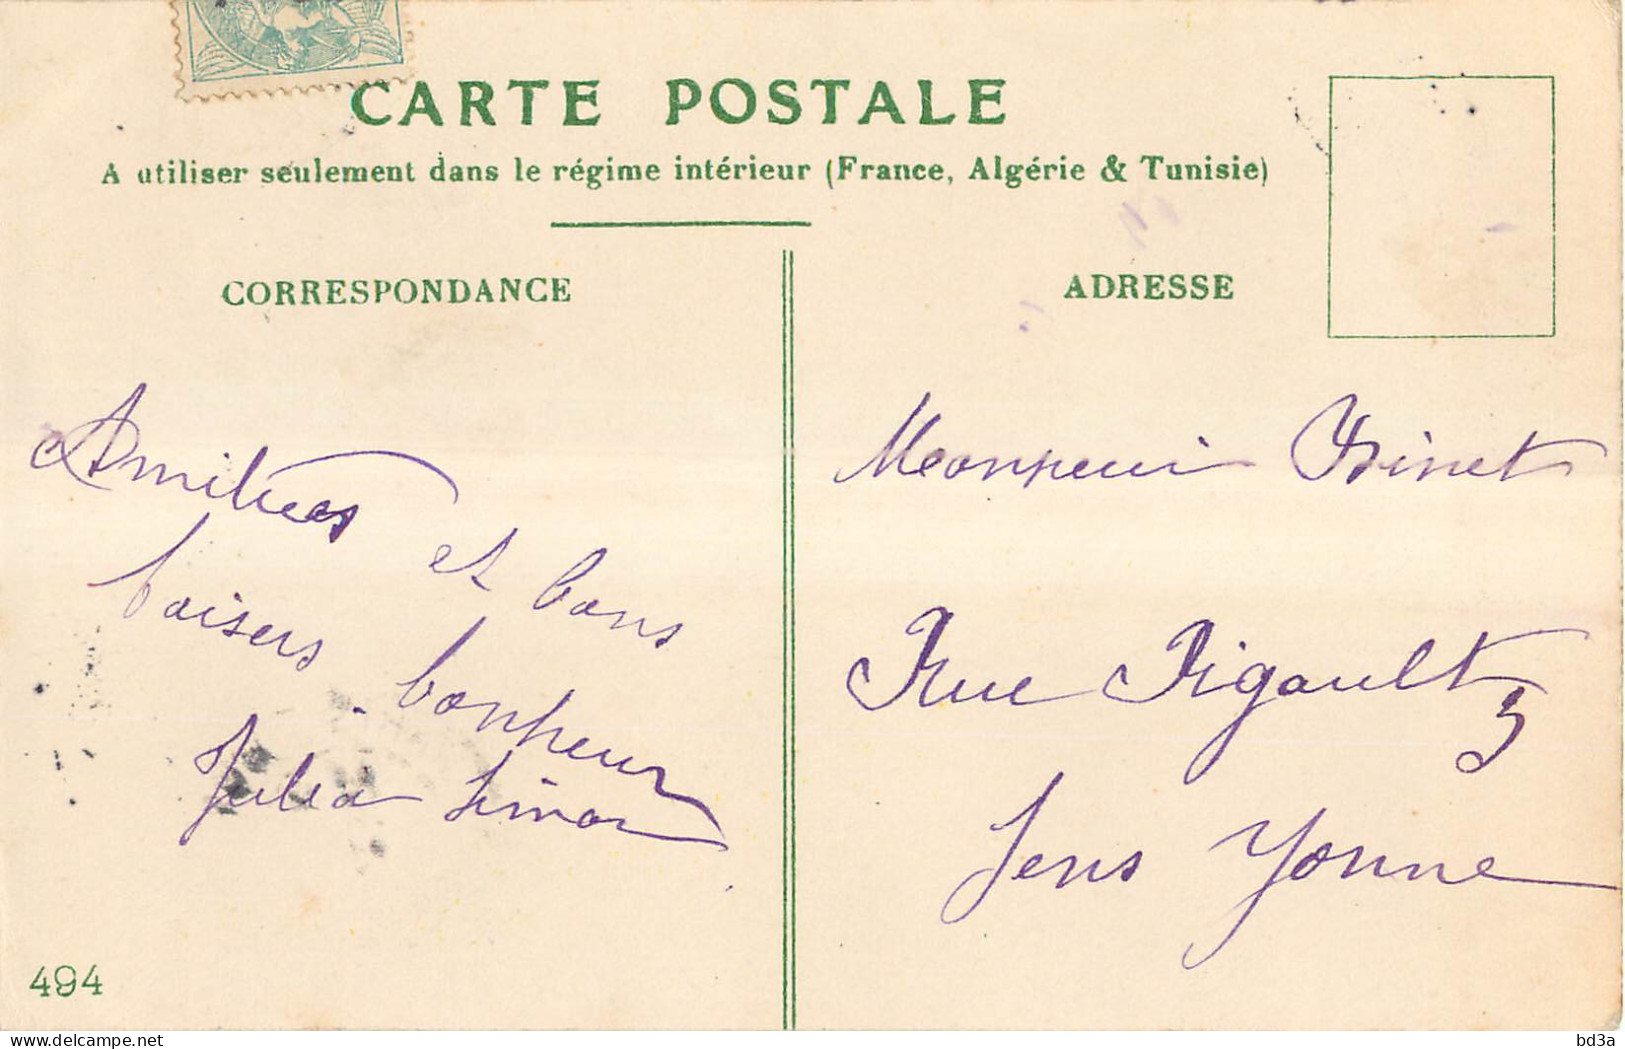 CARTE POSTALE
A utiliser seulement dans le régime intérieur (France, Algérie & Tunisie)
CORRESPONDANCE
ADRESSE
Amitiées
et bons
baisers. bonheur
Julia Simon
Monsieur Binet
Rue Rigault 3
Sens Yonne
494
bd3a